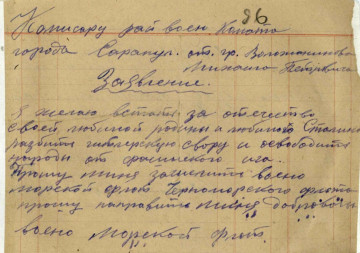 86
Комисару рай воен Комата
города Сарапул. от. гр. Воложанинова
Михаила Петровича
Заявление.
Я желаю встать за отечество
своей любимой родины и любимого Сталина
разбить гитлерскую свору и освободить
народы от фашиского ига.
Прошу миня зачислить воено
морской флот Черноморского флота
прошу направить миня доброволь
воено морской флот.